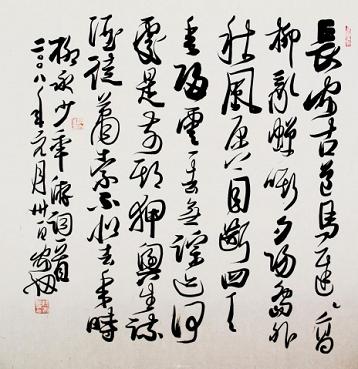 長安古道馬遲遲高
柳亂蟬嘶夕陽島外
秋風原上目斷四天
垂歸雲一去無踪迹何
處是前期狎興生疏
酒徒蕭索不似去年時
柳永少年游詞一首
二〇〇八年元月卅